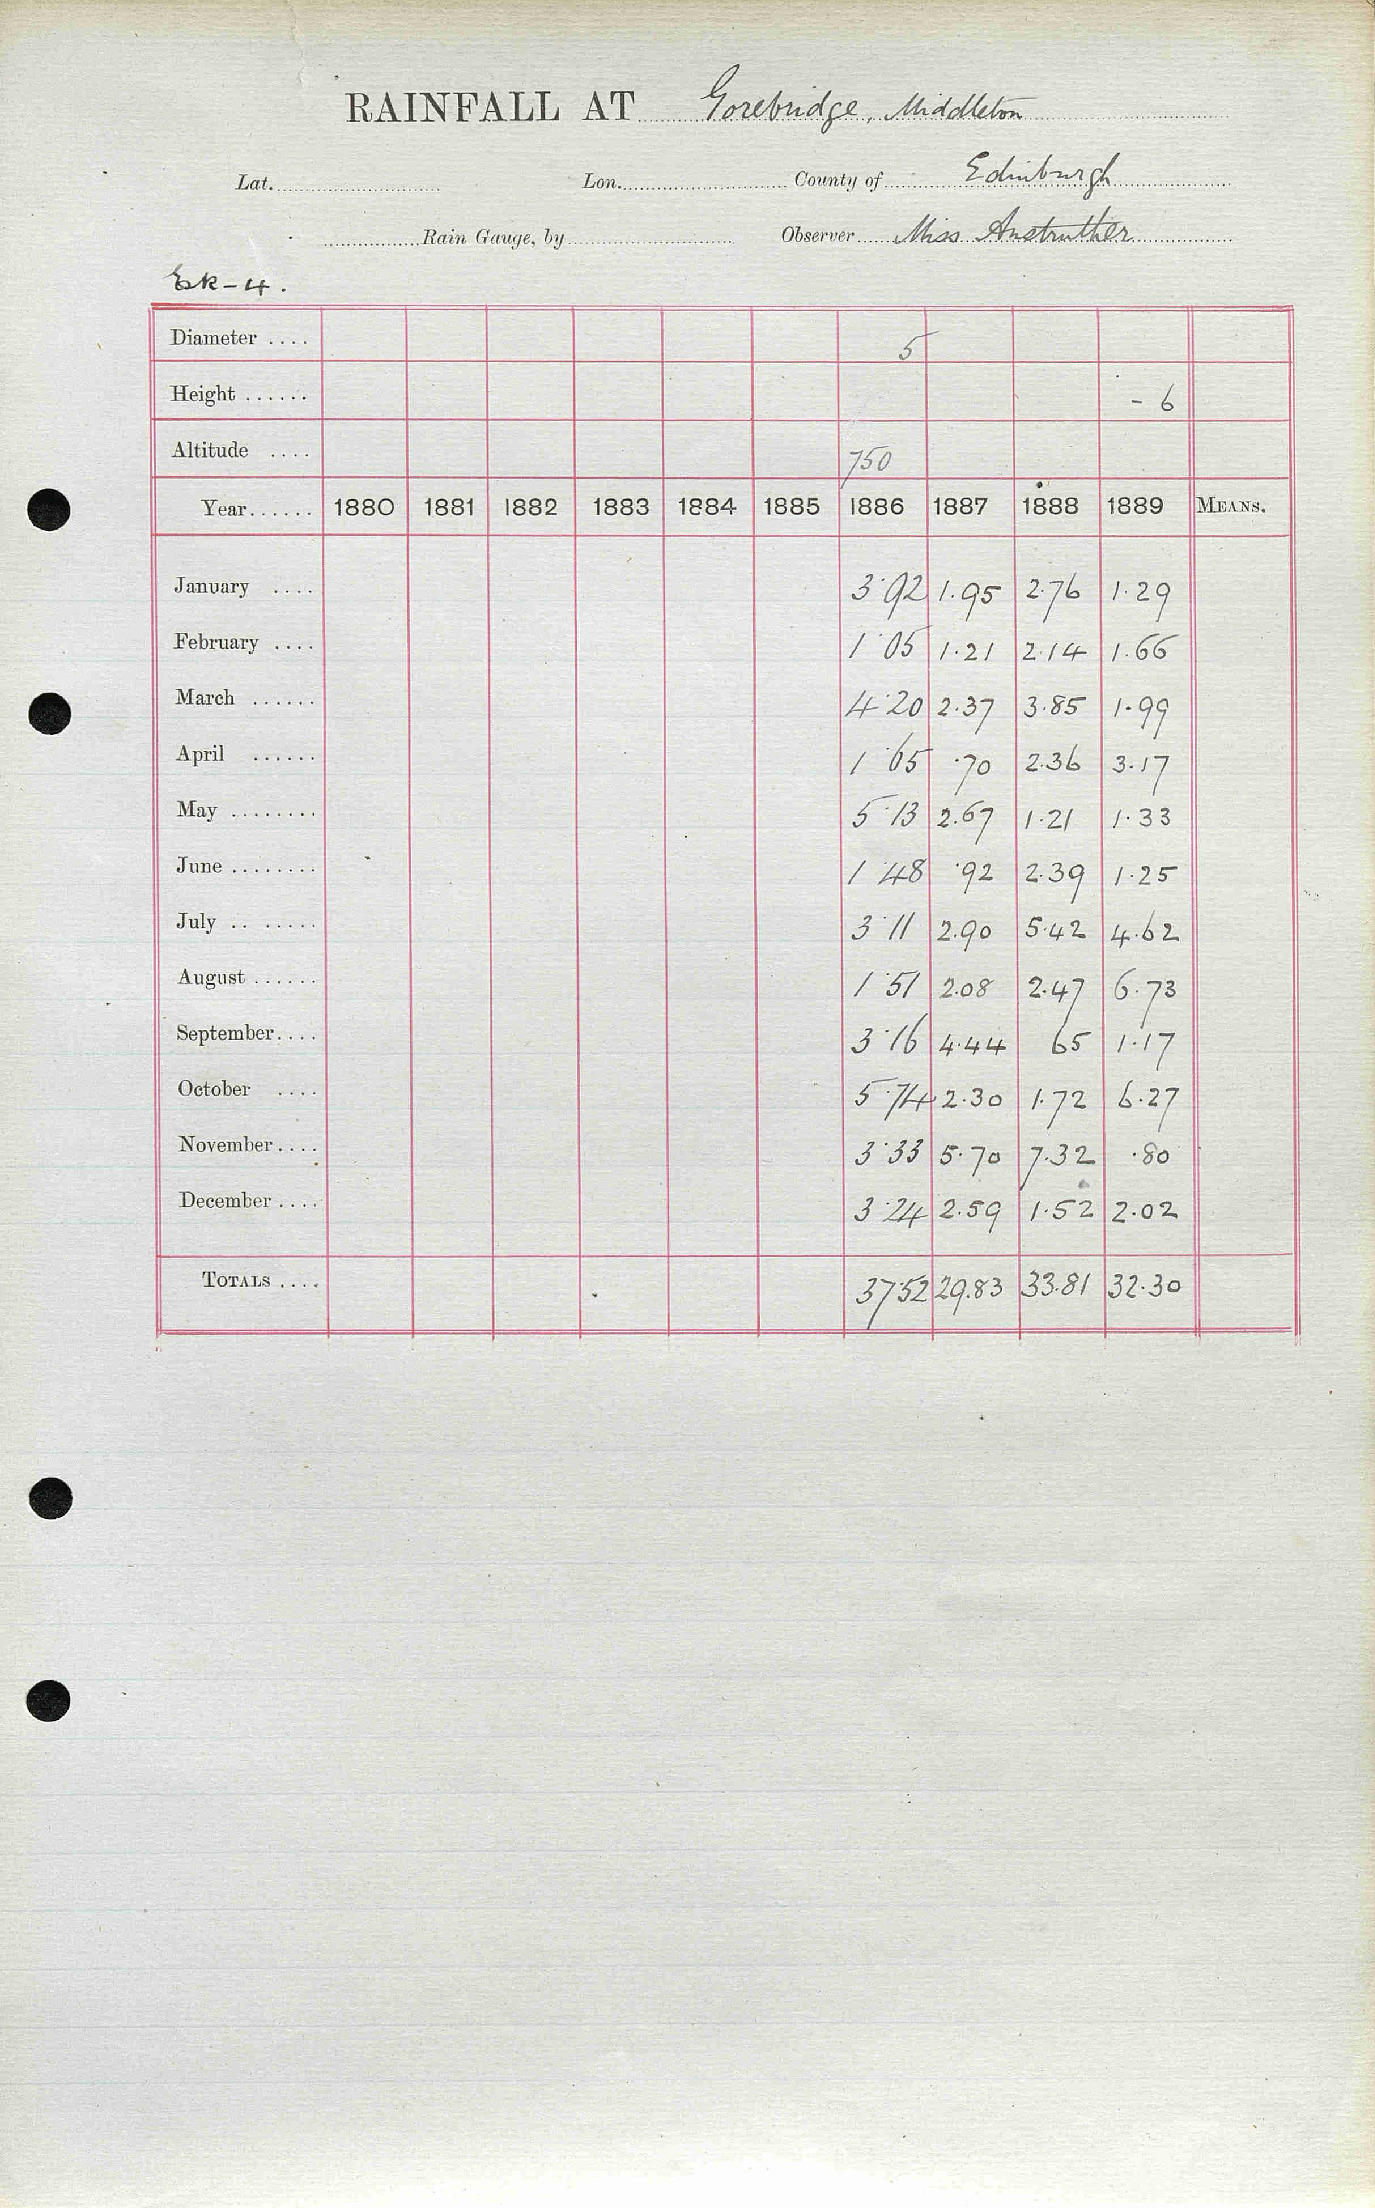 RAINFALL AT Gorebridge, Middleton
Lat. Lon. County of Edinburgh
Rain Gauge, by Observer Miss Anstruther
Esk-4.
Diameter .... 5
Height ...... - 6
Altitude .... 750
Year...... 1880 1881 1882 1883 1884 1885 1886 1887 1888 1889 MEANS.
January .... 3·92 1.95 2.76 1.29
February .... 1·05 1.21 2.14 1.66
March ...... 4·20 2.37 3.85 1.99
April ...... 1·65 ·70 2.36 3.17
May ........ 5·13 2.67 1.21 1.33
June ........ 1·48 ·92 2.39 1.25
July .. ...... 3·11 2.90 5.42 4.62
August ...... 1·51 2.08 2.47 6.73
September.... 3·16 4.44 65 1.17
October .... 5·74 2.30 1.72 6.27
November.... 3·33 5.70 7.32 ·80
December.... 3·24 2.59 1.52 2.02
TOTALS .... 37·52 29.83 33.81 32.30